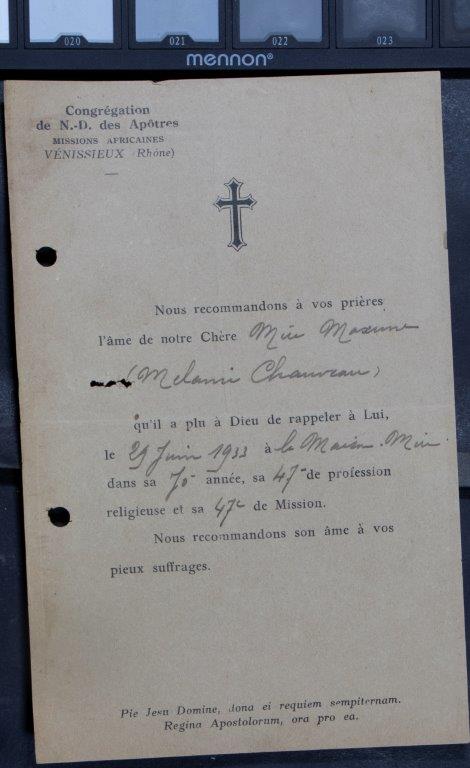 020 021 022 023
mennon®
Congrégation
de N.-D. des Apôtres
MISSIONS AFRICAINES
VÉNISSIEUX (Rhône)
Nous recommandons à vos prières
l'âme de notre Chère Mère Maxime
(Mélanie Chauveau)
qu'il a plu à Dieu de rappeler à Lui,
le 29 Juin 1933 à la Maison-Mère
dans sa 70e année, sa 47e de profession
religieuse et sa 47e de Mission.
Nous recommandons son âme à vos
pieux suffrages.
Pie Jesu Domine, dona ei requiem sempiternam.
Regina Apostolorum, ora pro ea.